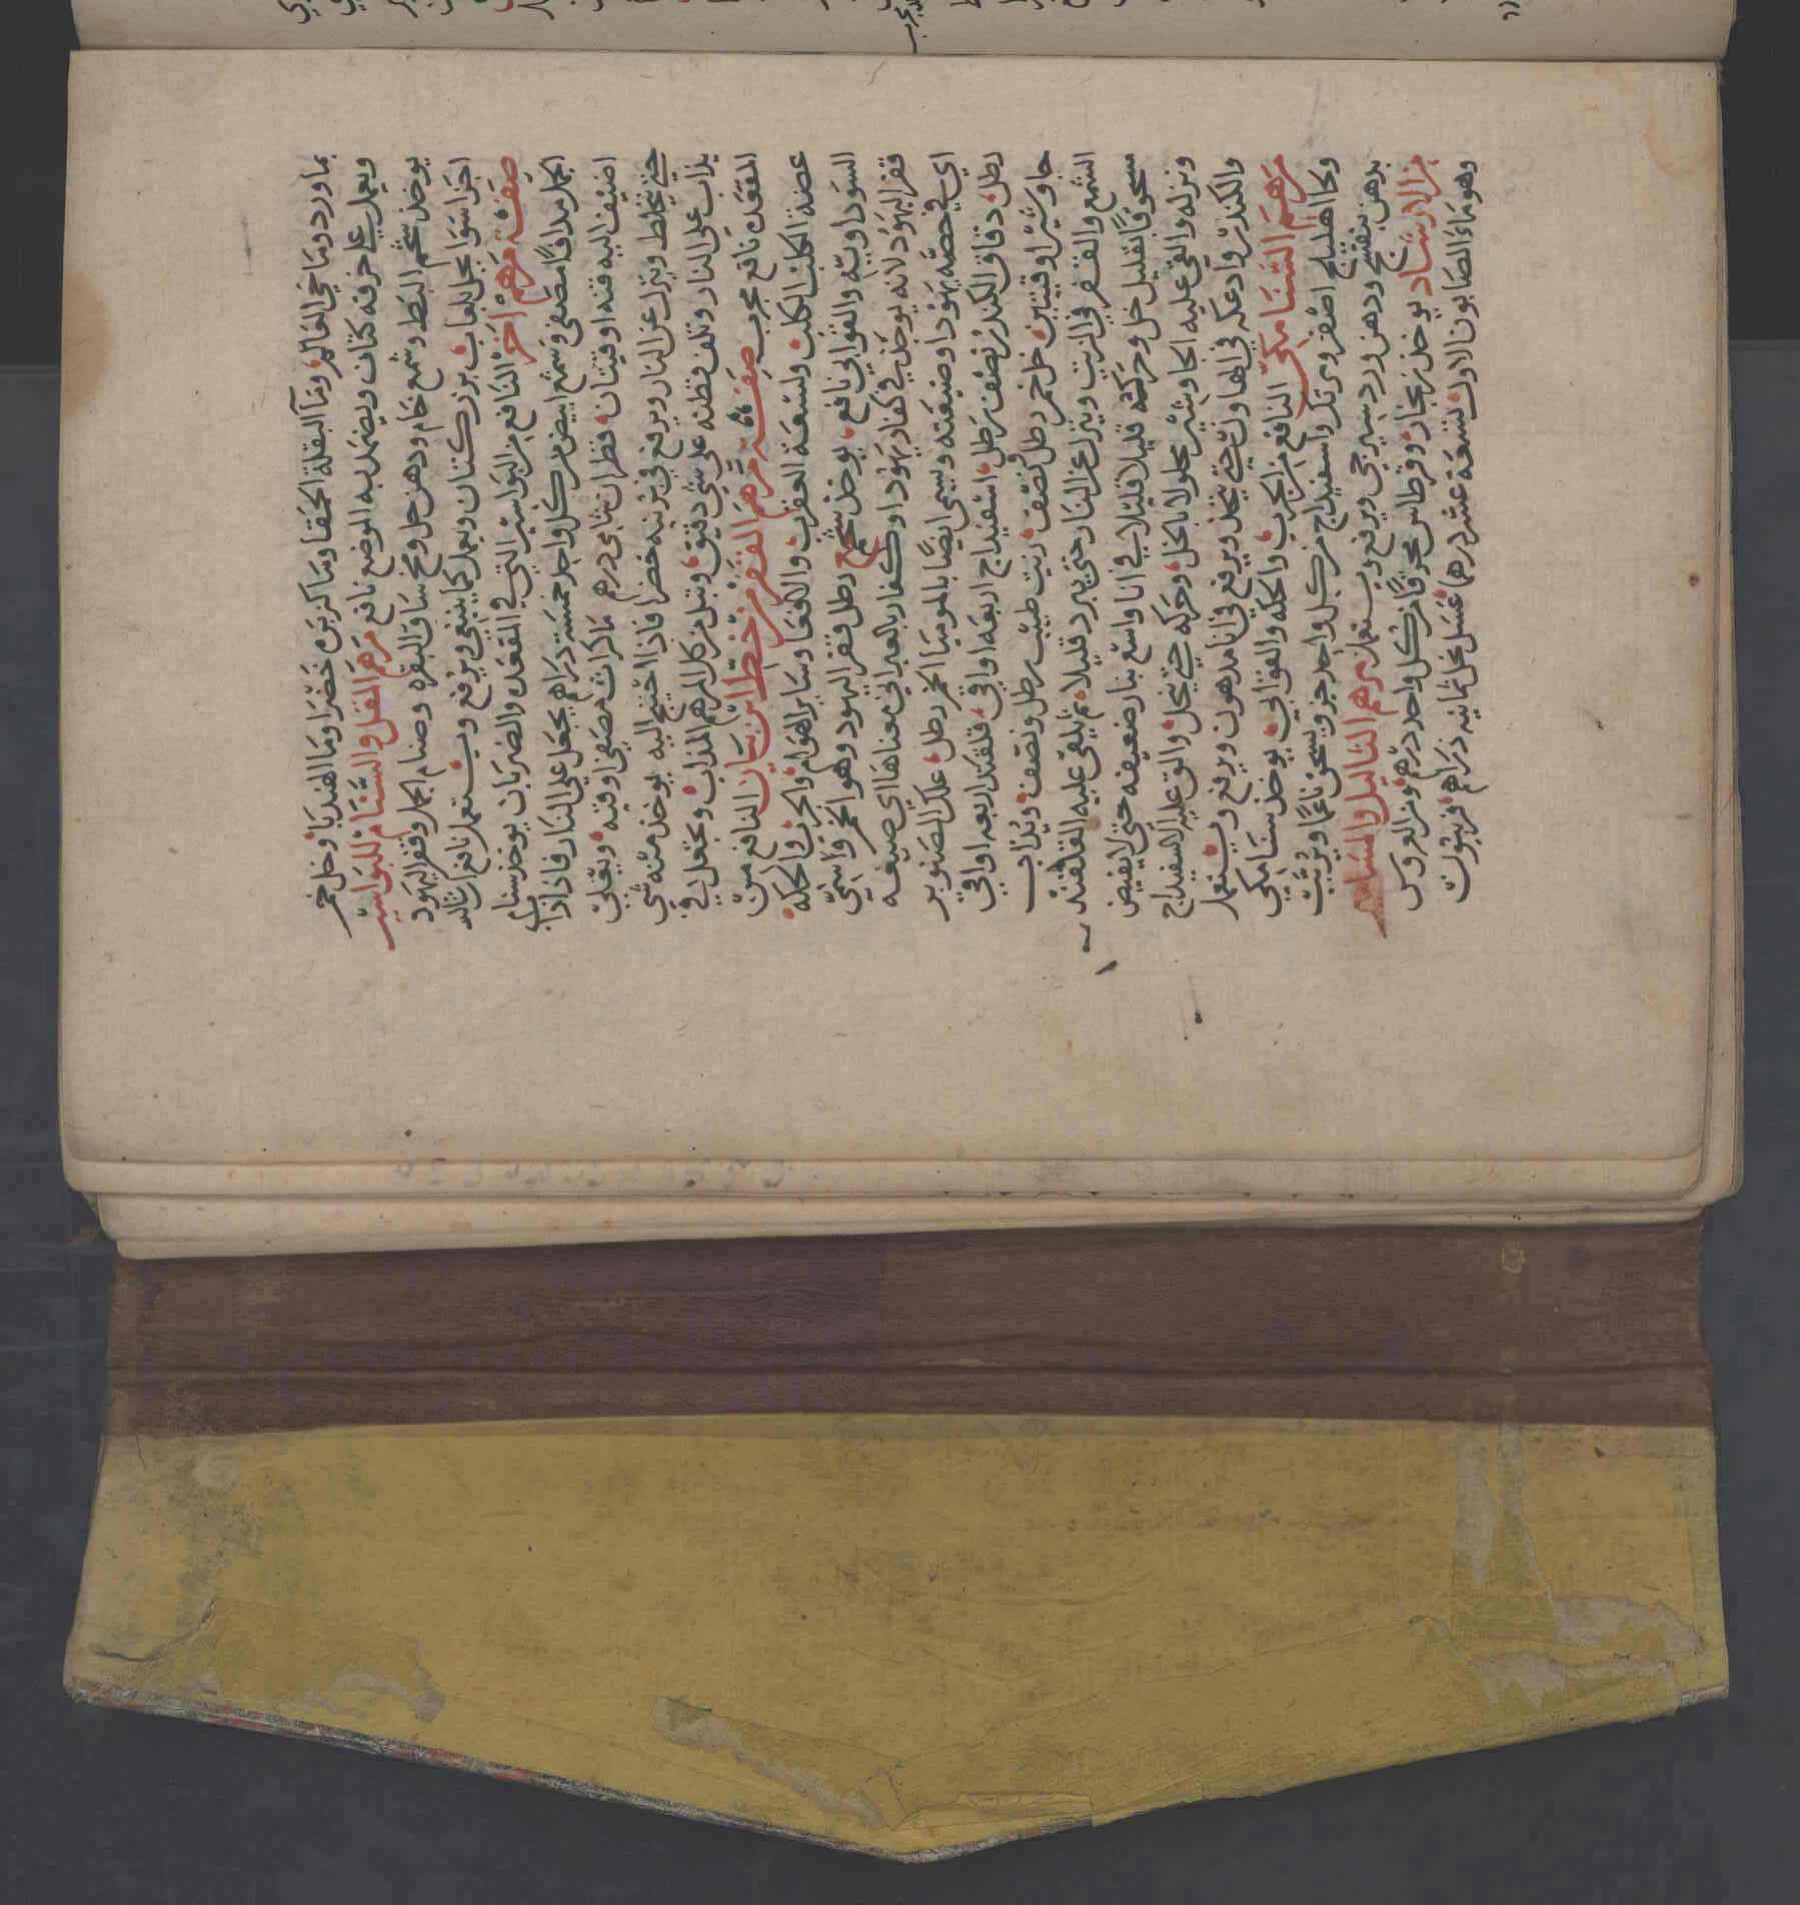 بماورد وماحي العالم وما البقلة الحمقا وما كزبره خضرا وما الهندبا وخل خمر
ويعمل علي خرقه كتان ويضمد به الموضع نافع مرهم المقل والسنام للبواسير
يوخذ شحم البط وشمع خام ودهن حل ومخ ساق البقره وصنام الجمل وقفر اليهود
اجزا سوا يحل بلعاب بزر كتان ويعمل كما ينبغي ويرفع ويستعمل نافع
صفة مرهم اخر النافع من البواسير التي في المقعده والضربان يوخذ سنام
الجمل مدافا مصفي وشمع ابيض من كل واحد خمسة دراهم يجعل علي النار فاذا ذاب
اضيف اليه قنه اوقيتان قطران شامي درهم ماكراث مصفي اوقيه ويغلي
حتي يختلط وينزل عن النار ويرفع في برنيه خضرا فاذا احتيج اليه يوخذ منه شي
يذاب علي النار وتلف قطنه علي شي دقيق وتبل من المرهم المذاب وتجعل في
المقعده نافع مجرب صفة مرهم القفر من خط ابن بيان النافع من
عضة الكلب الكلب ولسعة العقرب والافعا وساير الهوام والجرب والحكه
السوداويه والقوابي نافع يوخذ شمع رطل قفر اليهود وهو الحمر واسمي
قفر اليهود لانه يوجد في كفار يهودا وكفار بالعبراني معناها اي ضيعه
اي في حصة يهودا وضيعته ويسمي ايضا بالموميا الحمر رطل علك الصنوبر
رطل دقاق الكندر نصف رطل اسفيداج اربعه اواقي قلقند اربعه اواقي
جاوشير اوقيتين خل خمر رطل ونصف زيت طيب رطل ونصف ويذاب
الشمع والقفر في الزيت وينزل عن النار حتي يبرد قليلا ثم يلقي عليه القلقند
مسحوقا بقليل خل وحركه قليلا قليلا في انا واسع بنار ضعيفه حتي لا يفيض
ونزله والقي عليه الجاوشير محلولا بالخل وحركه حتي ينحل والق عليه الاسفيداج
والكندر وادعكه في الهاون حتي يتخذ ويرفع في انا مدهون ويرفع ويستعمل
مرهم السنامكي النافع من الجرب والحكه والقوابي يوخذ سنامكي
وكا اهليلج اصفر ومرتك واسفيداج من كل واحد جزو يسحق ناعما ويربب
بدهن بنفسج ودهن ورد سيرجي ويرفع ويستعمل مرهم الثاليل والمسامير
يوخذ زنجار وقرطاس محرقا من كل واحد درهم العروس
وهو ماء الصابون الاول تسعة عشر درهما عسل نحل ثمانيه دراهم فربيون